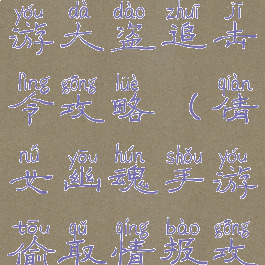 yóu dà dào zhuī jī
游大盗追击
lìng gōng lüè qiàn
令攻略（倩
nǚ yōu hún shǒu yóu
女幽魂手游
tōu qǔ qíng bào gōng
偷取情报攻